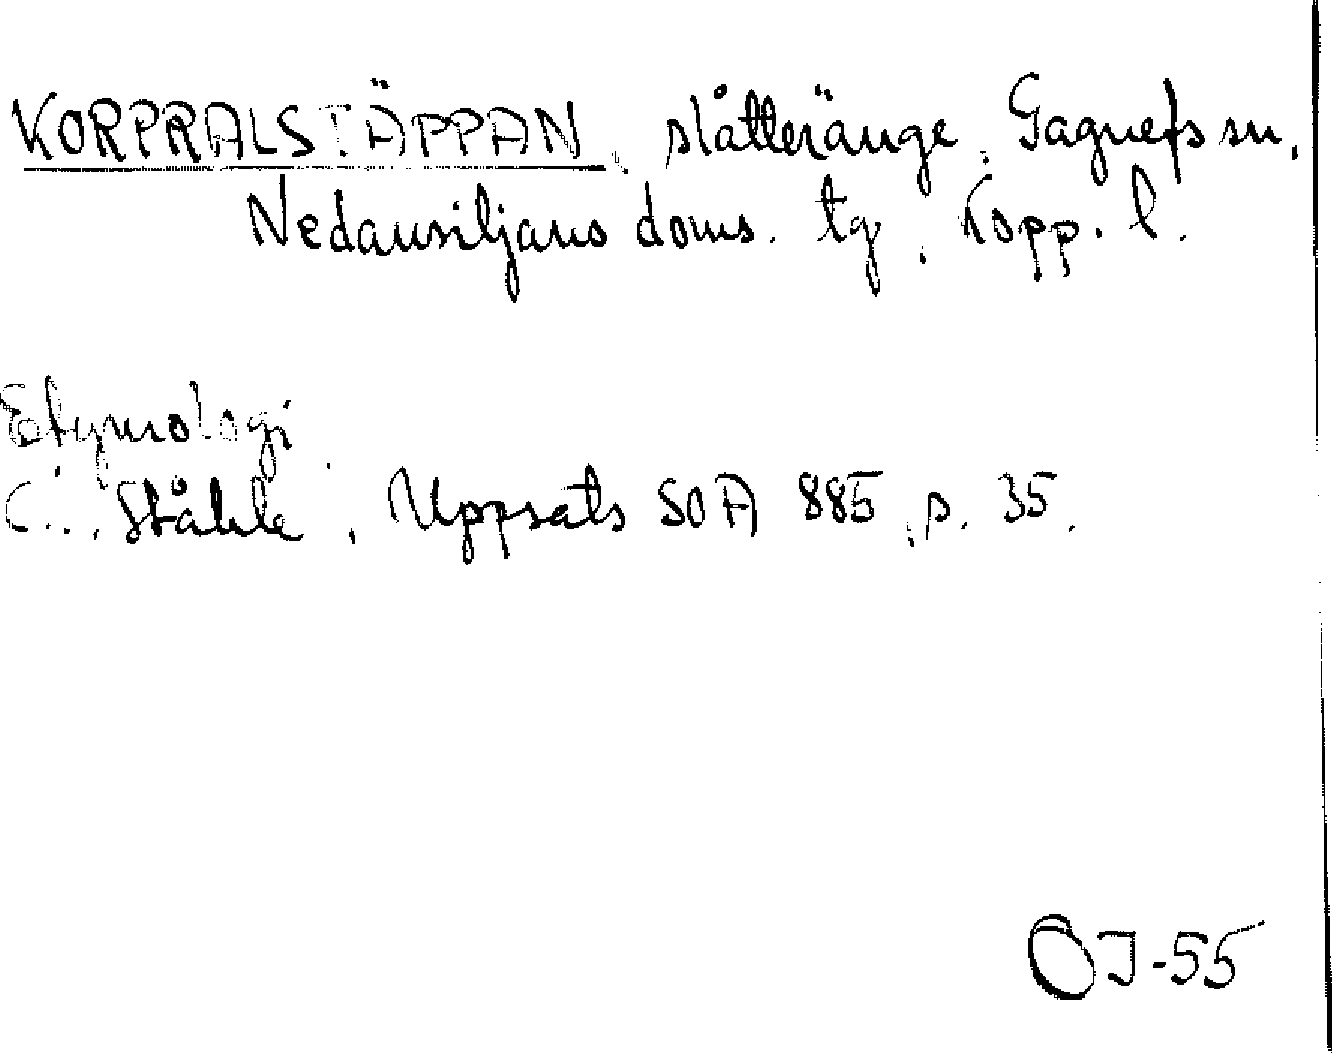 KORPRALSTÄPPAN, slåtteränge, Gagnefs sn,
Nedansiljans doms. tg, Kopp. l.
Etymologi
C.. Ståhle, Uppsats SOA 885, p. 35.
OJ-55